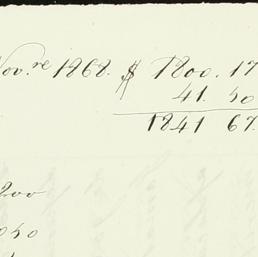 Nov.re 1868. $ 1800. 17
41. 50
1841 67.
200
050